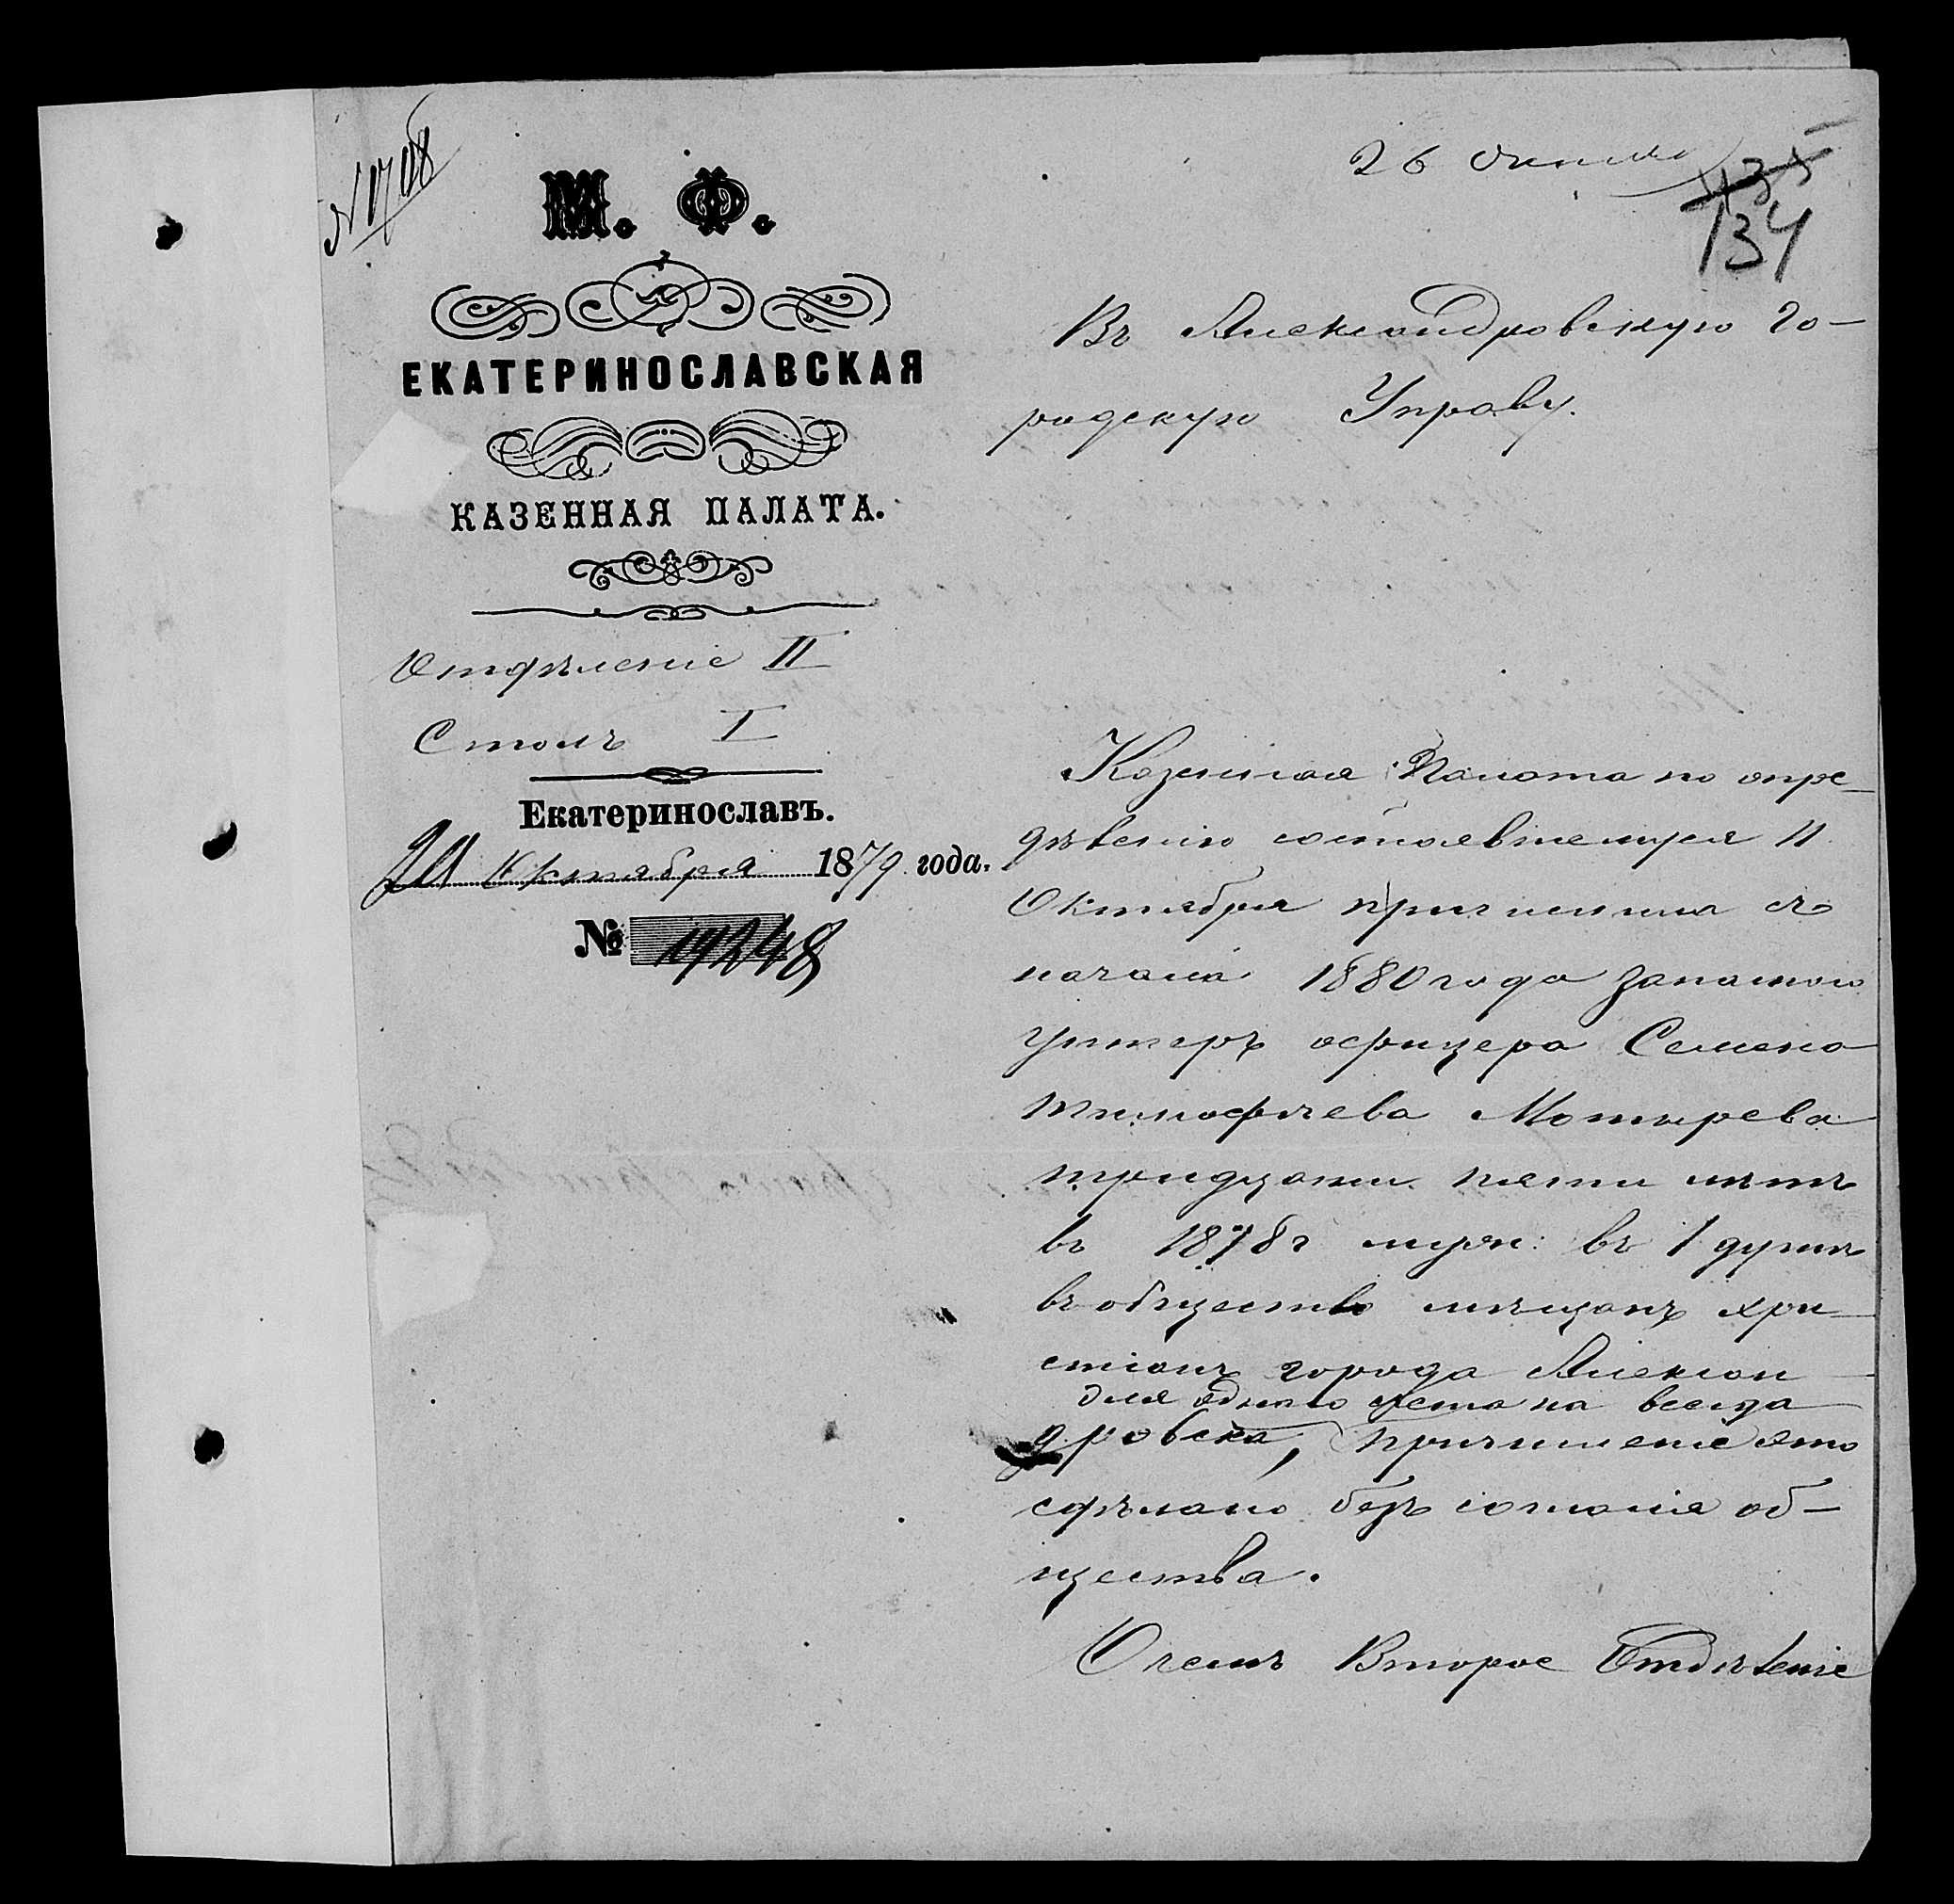 № 1708
М. Ф.
ЕКАТЕРИНОСЛАВСКАЯ
КАЗЕННАЯ ПАЛАТА.
Отдѣленіе II
Столъ I
Екатеринославъ.
Октября 1879 года.
№ 19248
26
135
134
Въ Александровскую Го-
родскую Управу.
Казенная Палата по опре-
дѣленію состоявшемуся 11
Октября причислила съ
начала 1880 года запаснаго
унтеръ офицера Семена
Тимофѣева Мотырева
тридцати пяти лѣтъ
въ 1878 г муж: въ 1 душѣ
въ общество мѣщанъ хри-
стіанъ города Алексан
для одного счета на всегда
дровска, причисленіе это
сдѣлано безъ согласія об-
щества.
О чемъ Второе Отдѣленіе